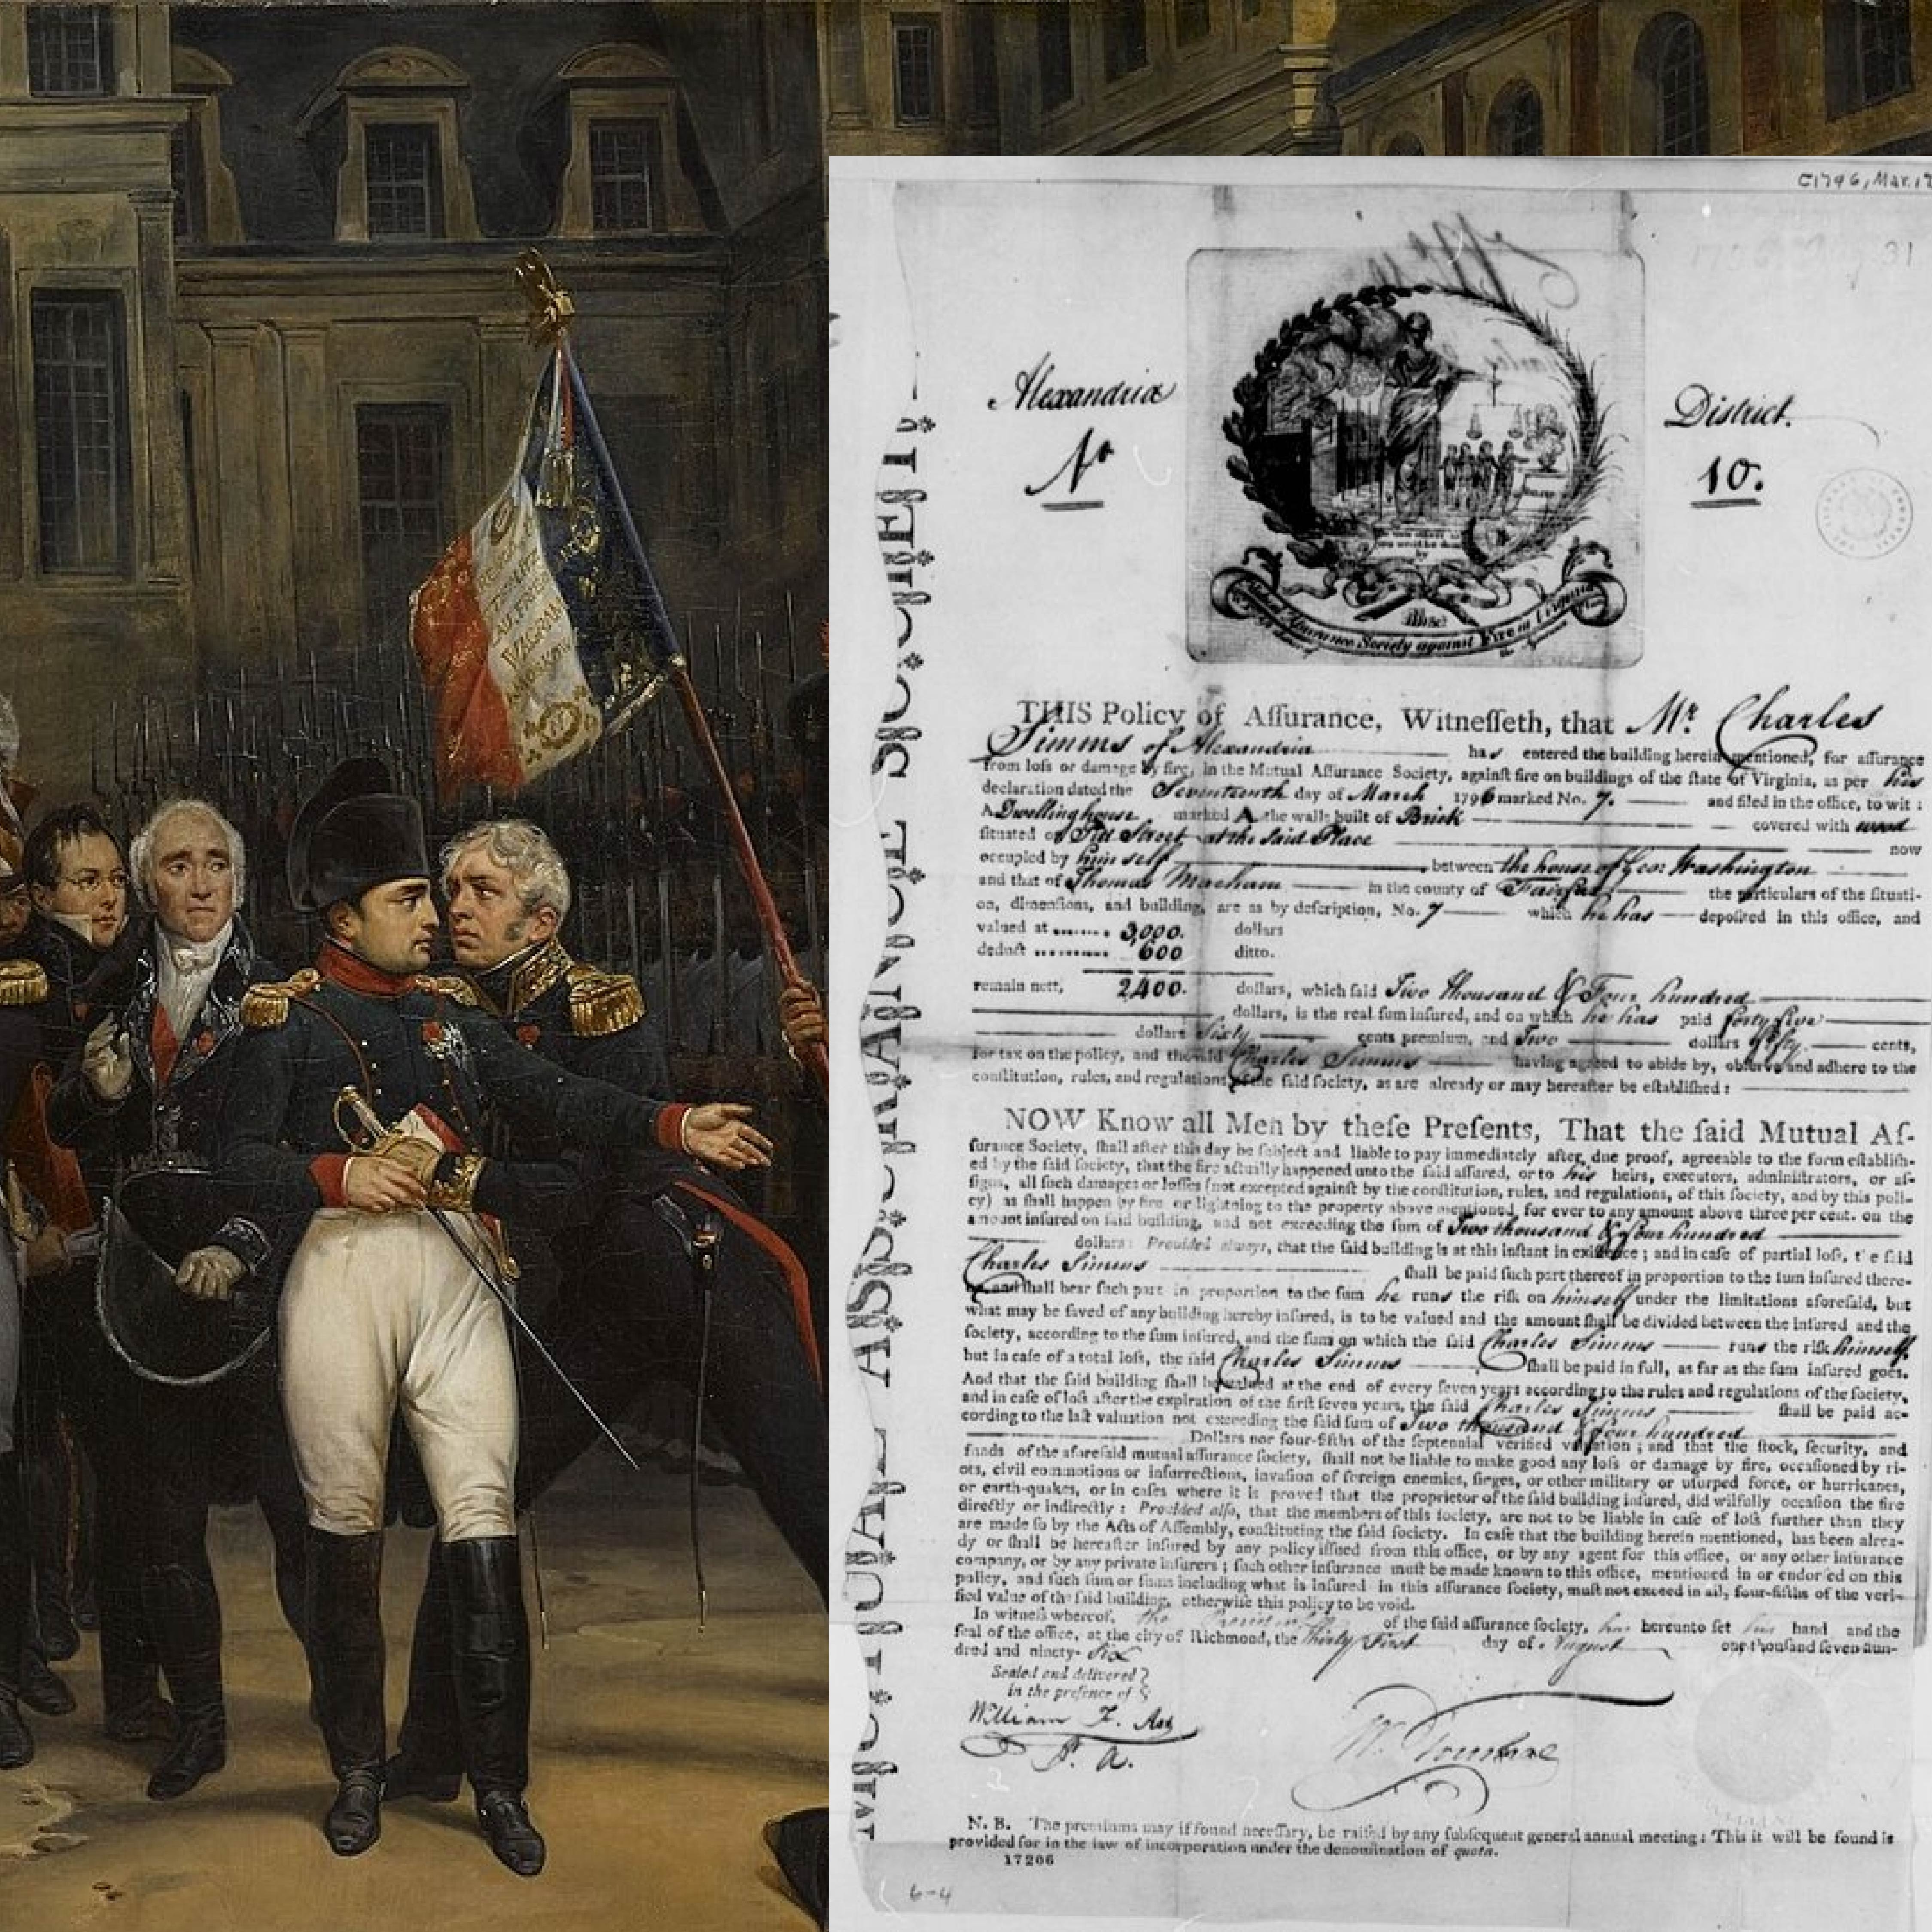 WAGRAM
C1796, Mar. 17
31
Alexandria
District.
No
10.
Assurance Society against Fire
MUTUAL ASSURANCE SOCIETY.
THIS Policy of Aſſurance, Witneſſeth, that Mr. Charles
Simms of Alexandria has entered the building herein mentioned, for aſſurance
from loſs or damage by fire, in the Mutual Aſſurance Society, againſt fire on buildings of the ſtate of Virginia, as per his
declaration dated the Seventeenth day of March 1796 marked No. 7. and filed in the office, to wit :
A Dwelling house marked A the walls built of Brick covered with wood
ſituated on Street at the said Place now
occupied by him self between the house of Geo: Washington
and that of Thomas in the county of Fairfax the particulars of the ſituati-
on, dimenſions, and building, are as by deſcription, No. 7 which he has depoſited in this office, and
valued at 3,000. dollars
deduct 600 ditto.
remain nett, 2400. dollars, which ſaid Two thousand & Four hundred
dollars, is the real ſum inſured, and on which he has paid forty five
dollars Sixty cents premium, and Two dollars fifty cents,
for tax on the policy, and the ſaid Charles Simms having agreed to abide by, obſerve and adhere to the
conſtitution, rules, and regulations of the ſaid ſociety, as are already or may hereafter be eſtabliſhed :
NOW Know all Men by theſe Preſents, That the ſaid Mutual Aſ-
ſurance Society, ſhall after this day be ſubject and liable to pay immediately after due proof, agreeable to the form eſtabliſh-
ed by the ſaid ſociety, that the fire actually happened unto the ſaid aſſured, or to his heirs, executors, adminiſtrators, or aſ-
ſigns, all ſuch damages or loſſes (not excepted againſt by the conſtitution, rules, and regulations, of this ſociety, and by this poli-
cy) as ſhall happen by fire or lightning to the property above mentioned, for ever to any amount above three per cent. on the
amount inſured on ſaid building, and not exceeding the ſum of Two thousand & four hundred
dollars: Provided always, that the ſaid building is at this inſtant in exiſtence ; and in caſe of partial loſs, the ſaid
Charles Simms ſhall be paid ſuch part thereof in proportion to the ſum inſured there-
and ſhall bear ſuch part in proportion to the ſum he runs the riſk on himself under the limitations aforeſaid, but
what may be ſaved of any building hereby inſured, is to be valued and the amount ſhall be divided between the inſured and the
ſociety, according to the ſum inſured, and the ſum on which the ſaid Charles Simms runs the riſk himself,
but in caſe of a total loſs, the ſaid Charles Simms ſhall be paid in full, as far as the ſum inſured goes.
And that the ſaid building ſhall be valued at the end of every ſeven years according to the rules and regulations of the ſociety,
and in caſe of loſs after the expiration of the firſt ſeven years, the ſaid Charles Simms ſhall be paid ac-
cording to the laſt valuation not exceeding the ſaid ſum of Two thousand & four hundred
Dollars nor four-fifths of the ſeptennial verified valuation ; and that the ſtock, ſecurity, and
funds of the aforeſaid mutual aſſurance ſociety, ſhall not be liable to make good any loſs or damage by fire, occaſioned by ri-
ots, civil commotions or inſurrections, invaſion of foreign enemies, ſieges, or other military or uſurped force, or hurricanes,
or earth-quakes, or in caſes where it is proved that the proprietor of the ſaid building inſured, did wilfully occaſion the fire
directly or indirectly : Provided alſo, that the members of this ſociety, are not to be liable in caſe of loſs further than they
are made ſo by the Acts of Aſſembly, conſtituting the ſaid ſociety. In caſe that the building herein mentioned, has been alrea-
dy or ſhall be hereafter inſured by any policy iſſued from this office, or by any agent for this office, or any other inſurance
company, or by any private inſurers ; ſuch other inſurance muſt be made known to this office, mentioned in or endorſed on this
policy, and ſuch ſum or ſums including what is inſured in this aſſurance ſociety, muſt not exceed in all, four-fifths of the veri-
fied value of the ſaid building, otherwiſe this policy to be void.
In witneſs whereof, the of the ſaid aſſurance ſociety, has hereunto ſet his hand and the
ſeal of the office, at the city of Richmond, the thirty First day of August one thouſand ſeven hun-
dred and ninety- six
Sealed and delivered
in the preſence of
William F. Ast
P. A.
N. B. The premiums may if found neceſſary, be raiſed by any ſubſequent general annual meeting : This it will be found is
provided for in the law of incorporation under the denomination of quota.
17206
6-4